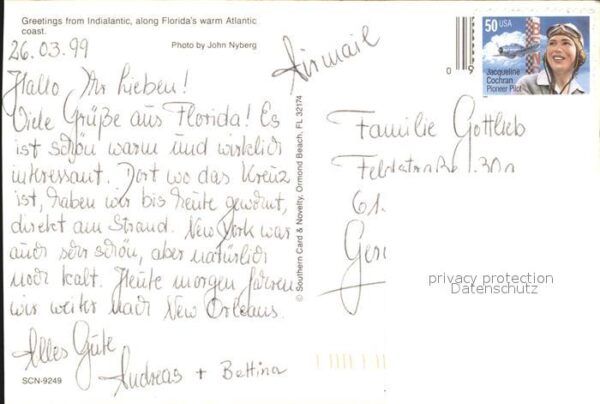 Greetings from Indialantic, along Florida's warm Atlantic
coast.
Photo by John Nyberg
26.03.99
Hallo Ihr Lieben!
Viele Grüße aus Florida! Es
ist schön warm und wirklich
interessant. Dort wo das Kreuz
ist, haben wir bis heute gewohnt,
direkt am Strand. New York war
auch sehr schön, aber natürlich
noch kalt. Heute morgen fahren
wir weiter nach New Orleans.
Alles Gute
Andreas + Bettina
SCN-9249
© Southern Card & Novelty, Ormond Beach, FL 32174
Airmail
09
50 USA
Jacqueline
Cochran
Pioneer Pilot
Familie Gottlieb
Feldstraße 130a
61.
Ger
privacy protection
Datenschutz